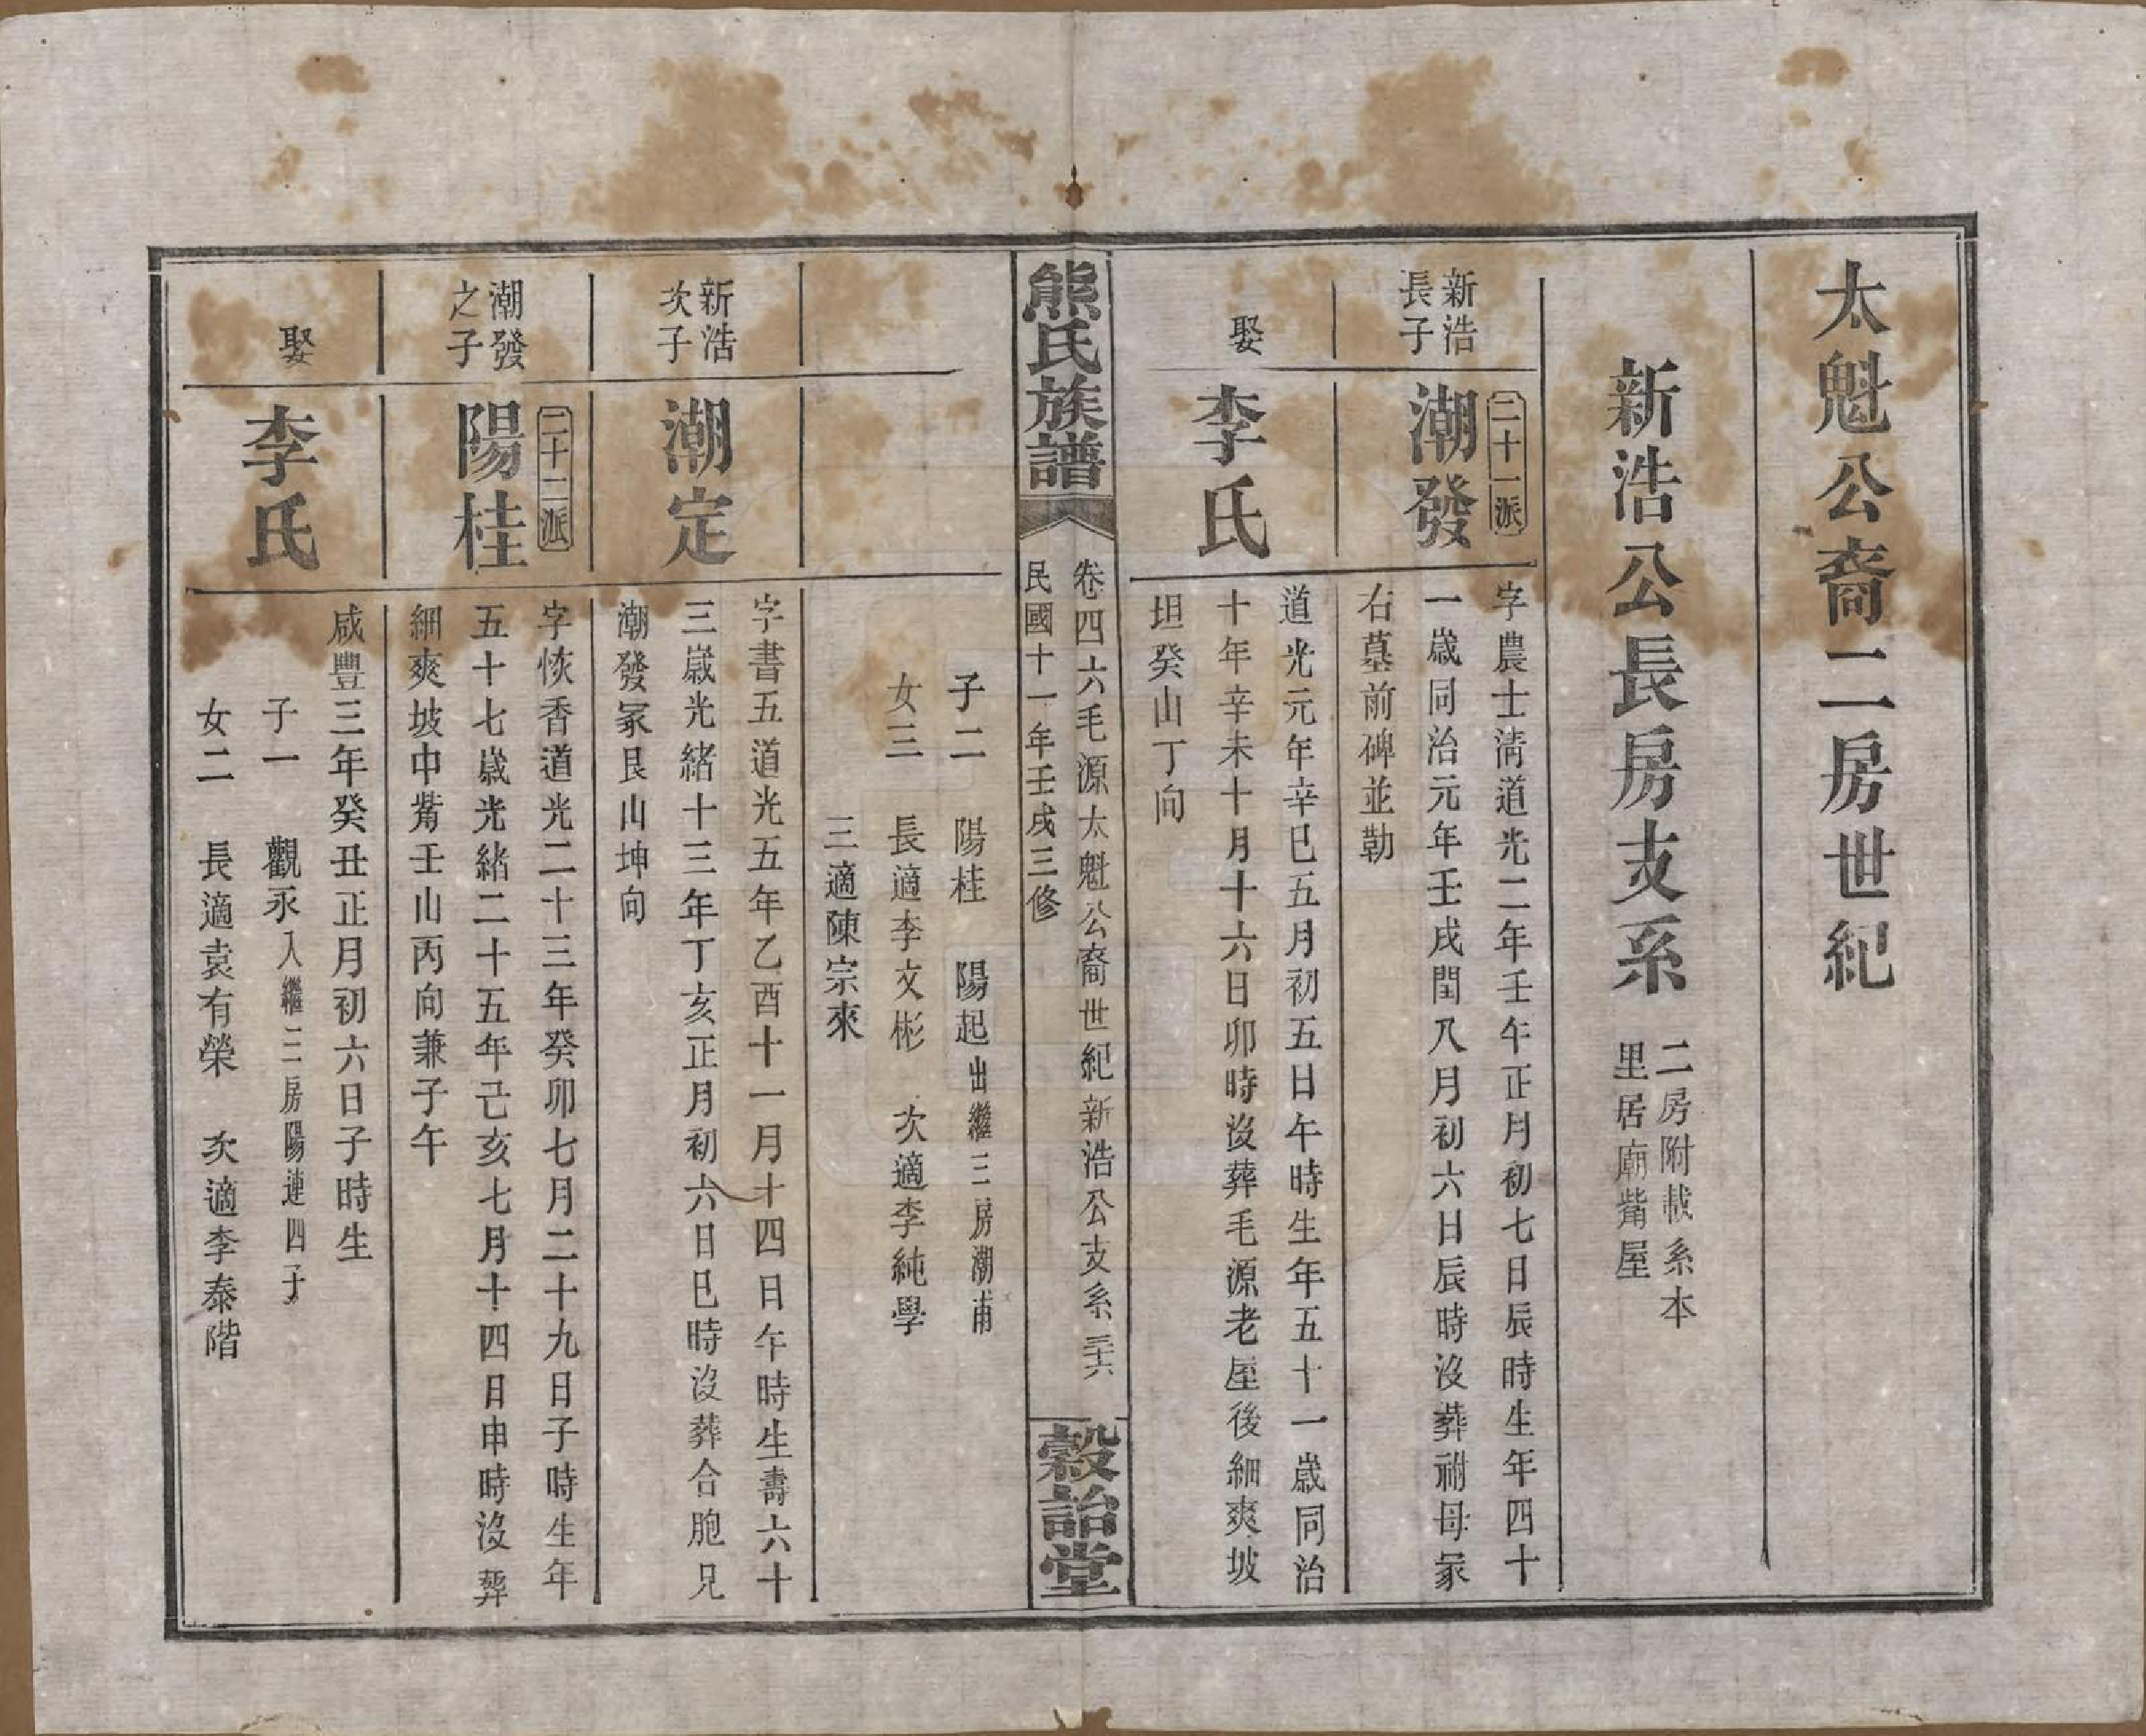 太魁公裔二房世紀
新浩公長房支系
二房附載系本
里居廟觜屋
新浩
長子
二十一派
潮發
字農士清道光二年壬午正月初七日辰時生年四十
一歲同治元年壬戌閏八月初六日辰時沒葬祔母冢
右墓前碑並勒
娶
李氏
道光元年辛巳五月初五日午時生年五十一歲同治
十年辛未十月十六日卯時沒葬毛源老屋後細爽坡
坦癸山丁向
熊氏族譜
卷四六毛源太魁公裔世紀新浩公支系 三六
民國十一年壬戌三修
穀詒堂
子二 陽桂 陽起出繼三房潮甫
女三 長適李文彬 次適李純學
三適陳宗來
新浩
次子
潮定
字書五道光五年乙酉十一月十四日午時生壽六十
三歲光緒十三年丁亥正月初六日巳時沒葬合胞兄
潮發冢艮山坤向
潮發
之子
二十二派
陽桂
字恢香道光二十三年癸卯七月二十九日子時生年
五十七歲光緒二十五年己亥七月十四日申時沒葬
細爽坡中觜壬山丙向兼子午
娶
李氏
咸豐三年癸丑正月初六日子時生
子一 觀永入繼三房陽連四子
女二 長適袁有榮 次適李泰階